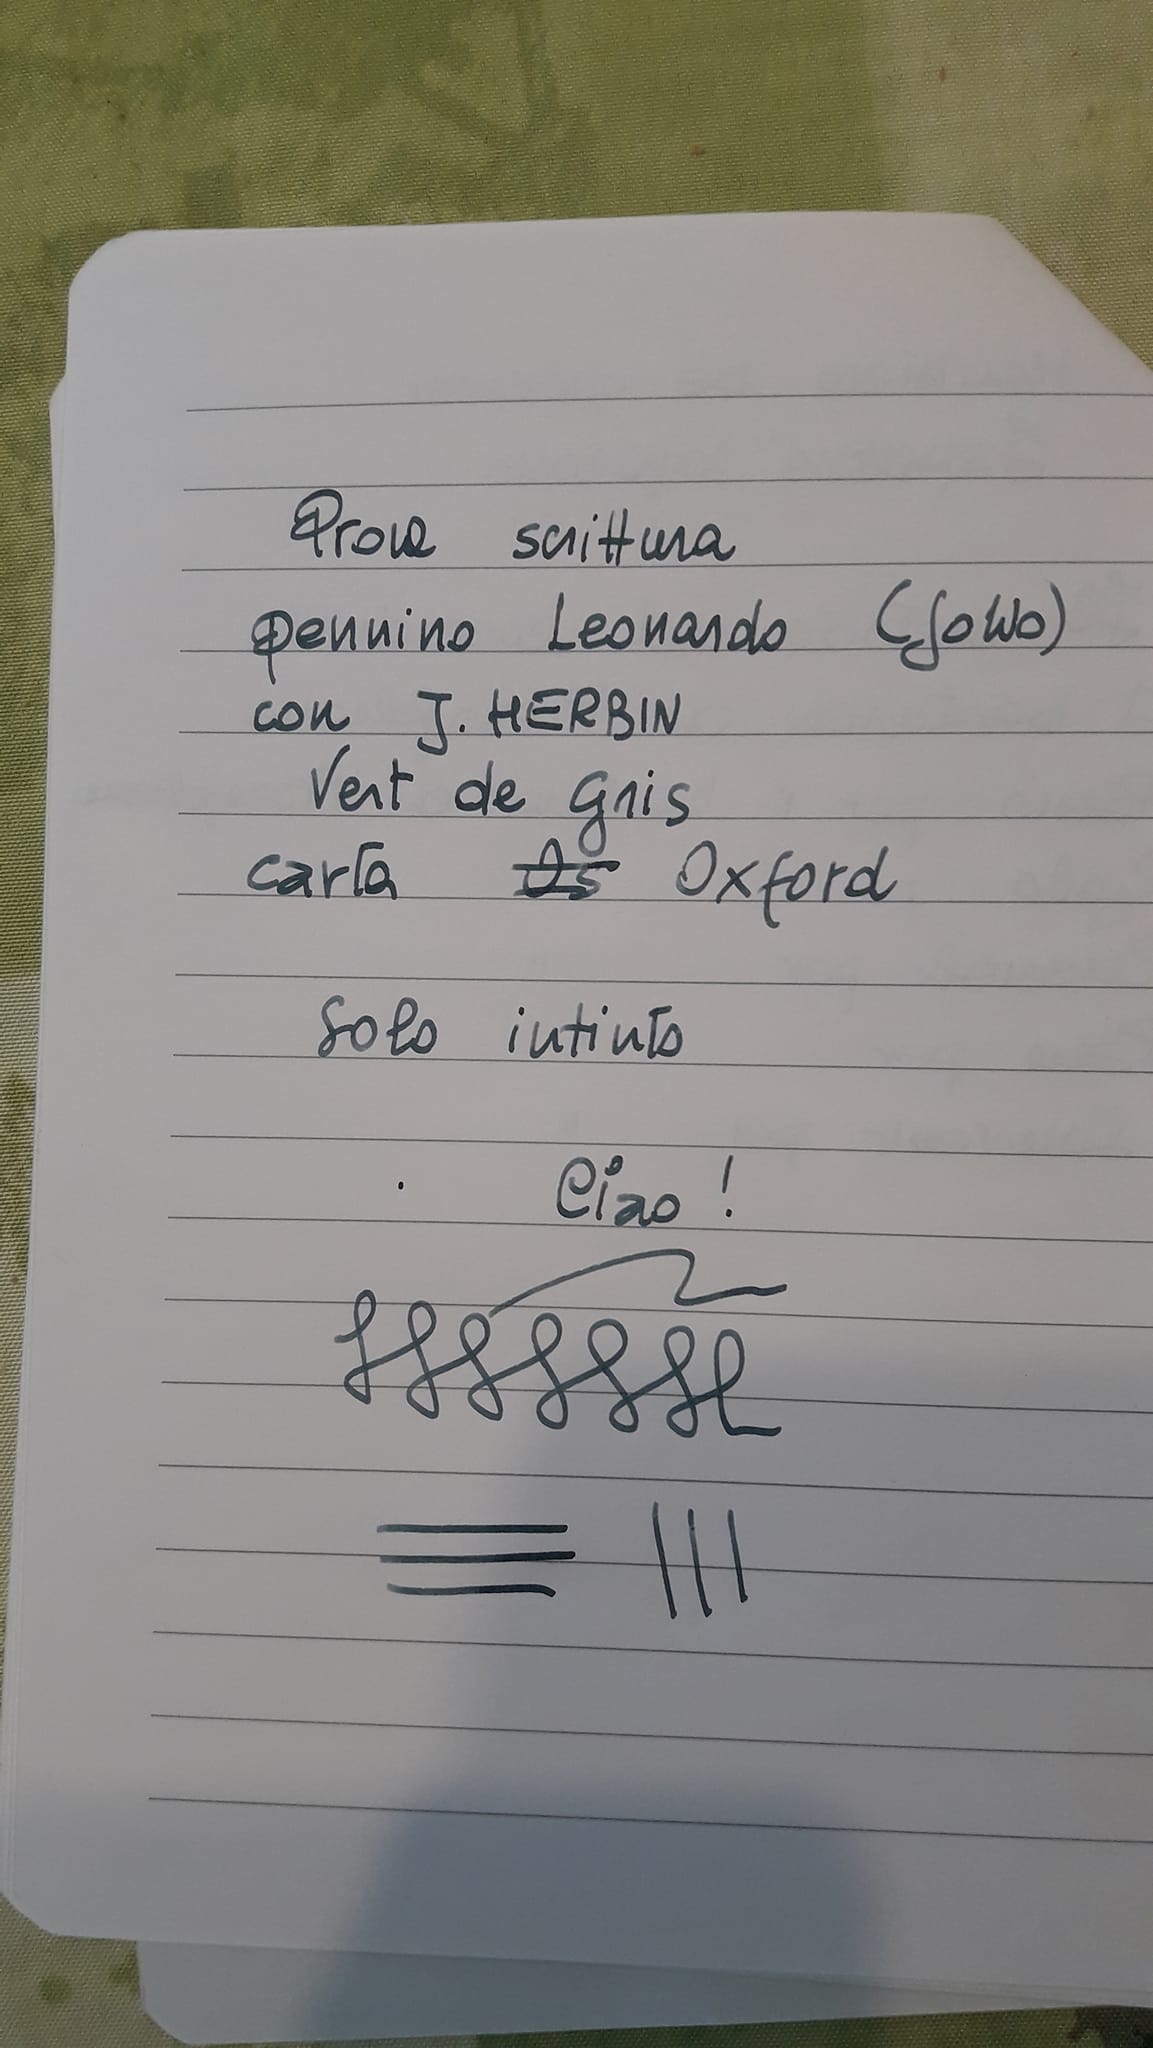 Prova scrittura
pennino Leonardo (JoWo)
con J. HERBIN
Vert de gris
carta Os Oxford
Solo intinto
Ciao!